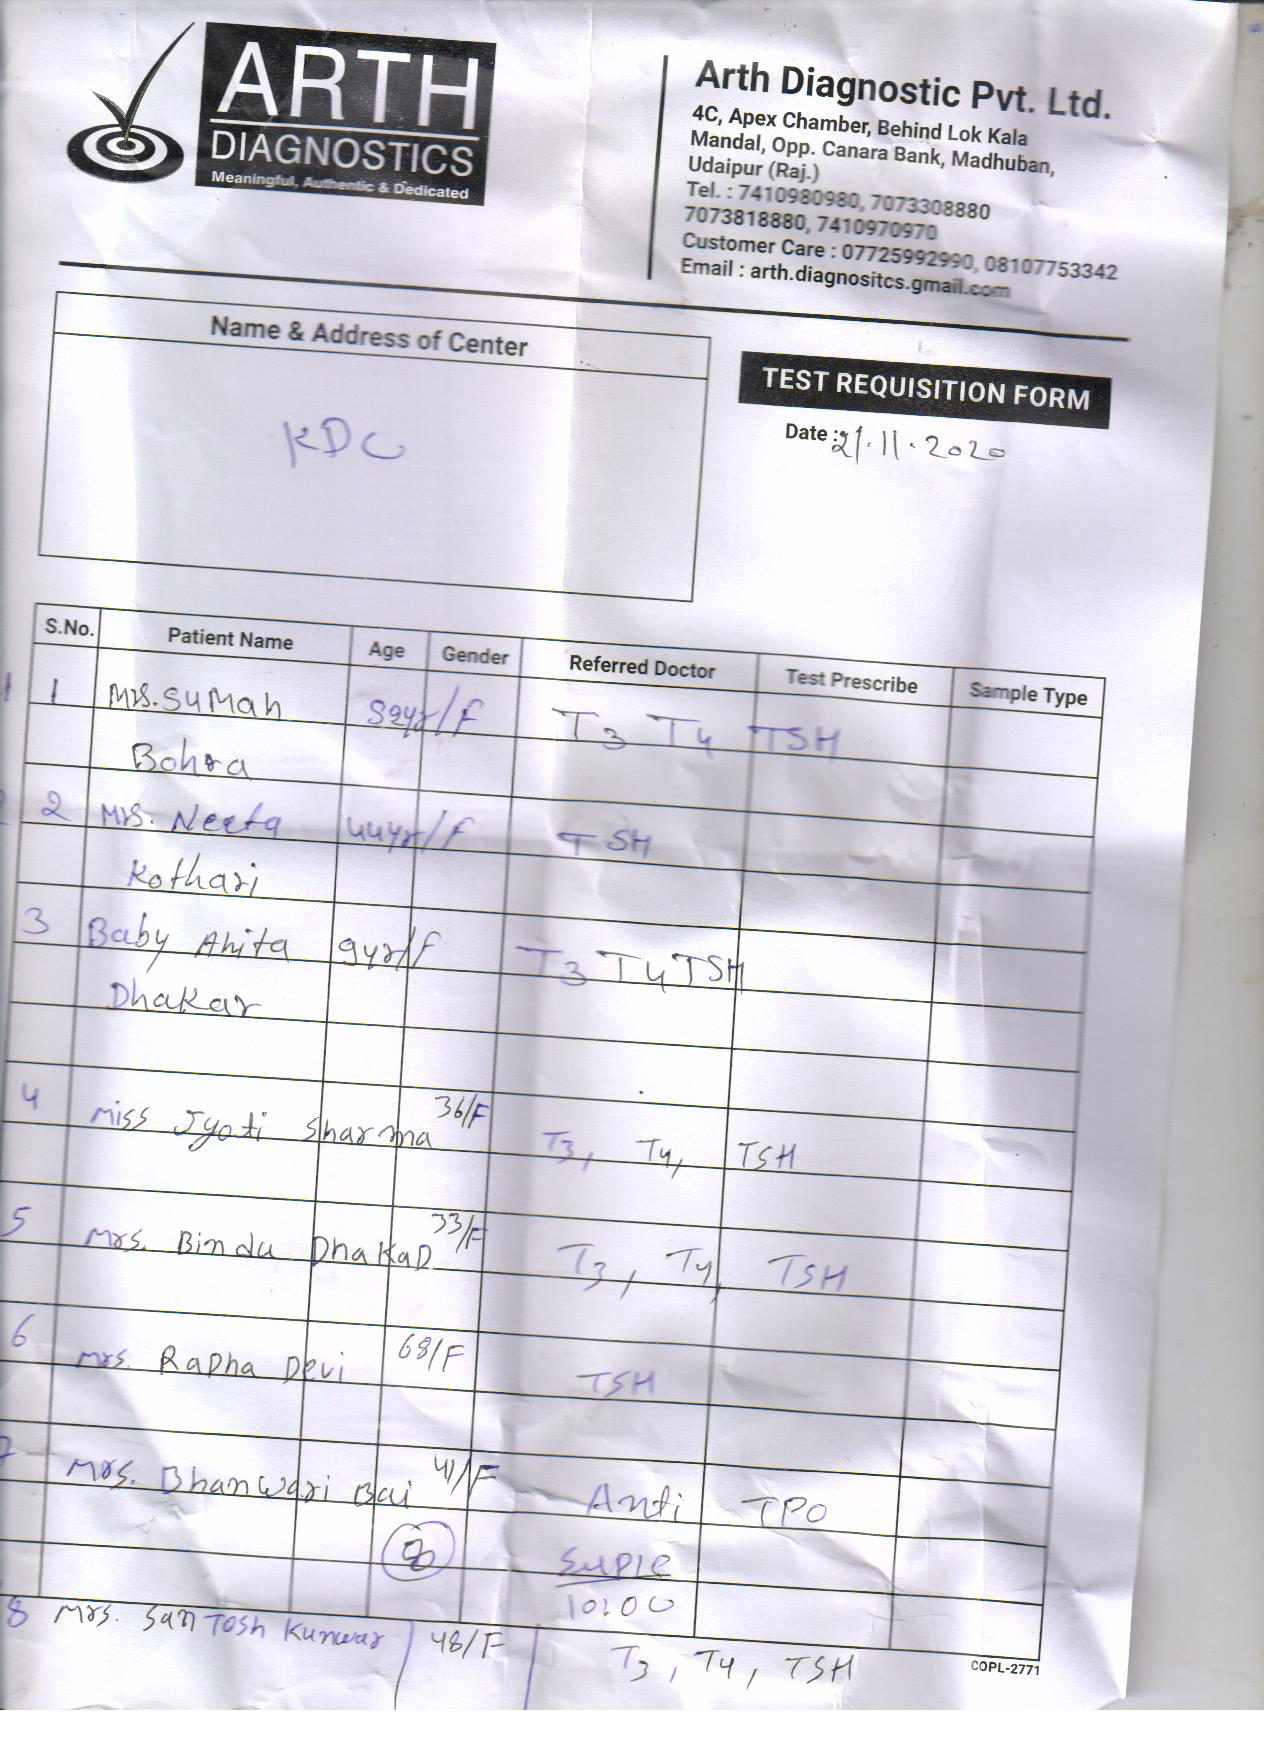 ARTH
DIAGNOSTICS
Meaningful, Authentic & Dedicated
Arth Diagnostic Pvt. Ltd.
4C, Apex Chamber, Behind Lok Kala
Mandal, Opp. Canara Bank, Madhuban,
Udaipur (Raj.)
Tel. : 7410980980, 7073308880
7073818880, 7410970970
Customer Care : 07725992990, 08107753342
Email : arth.diagnositcs.gmail.com
Name & Address of Center
KDC
TEST REQUISITION FORM
Date : 21.11.2020
S.No. Patient Name Age Gender Referred Doctor Test Prescribe Sample Type
1 Mrs. Suman 52yr/F T3 T4 TSH
Bohra
2 Mrs. Neeta 44yr/F TSH
Kothari
3 Baby Anita 9yr/F T3 T4 TSH
Dhakar
4 Miss Jyoti Sharma 36/F T3, T4, TSH
5 Mrs. Bindu DhaKaD 33/F T3, T4, TSH
6 Mrs. RaDha Devi 68/F TSH
7 Mrs. Bhanwari Bai 41/F Anti TPO
8
10:00
8 Mrs. SanTosh Kunwar 48/F T3, T4, TSH
COPL-2771